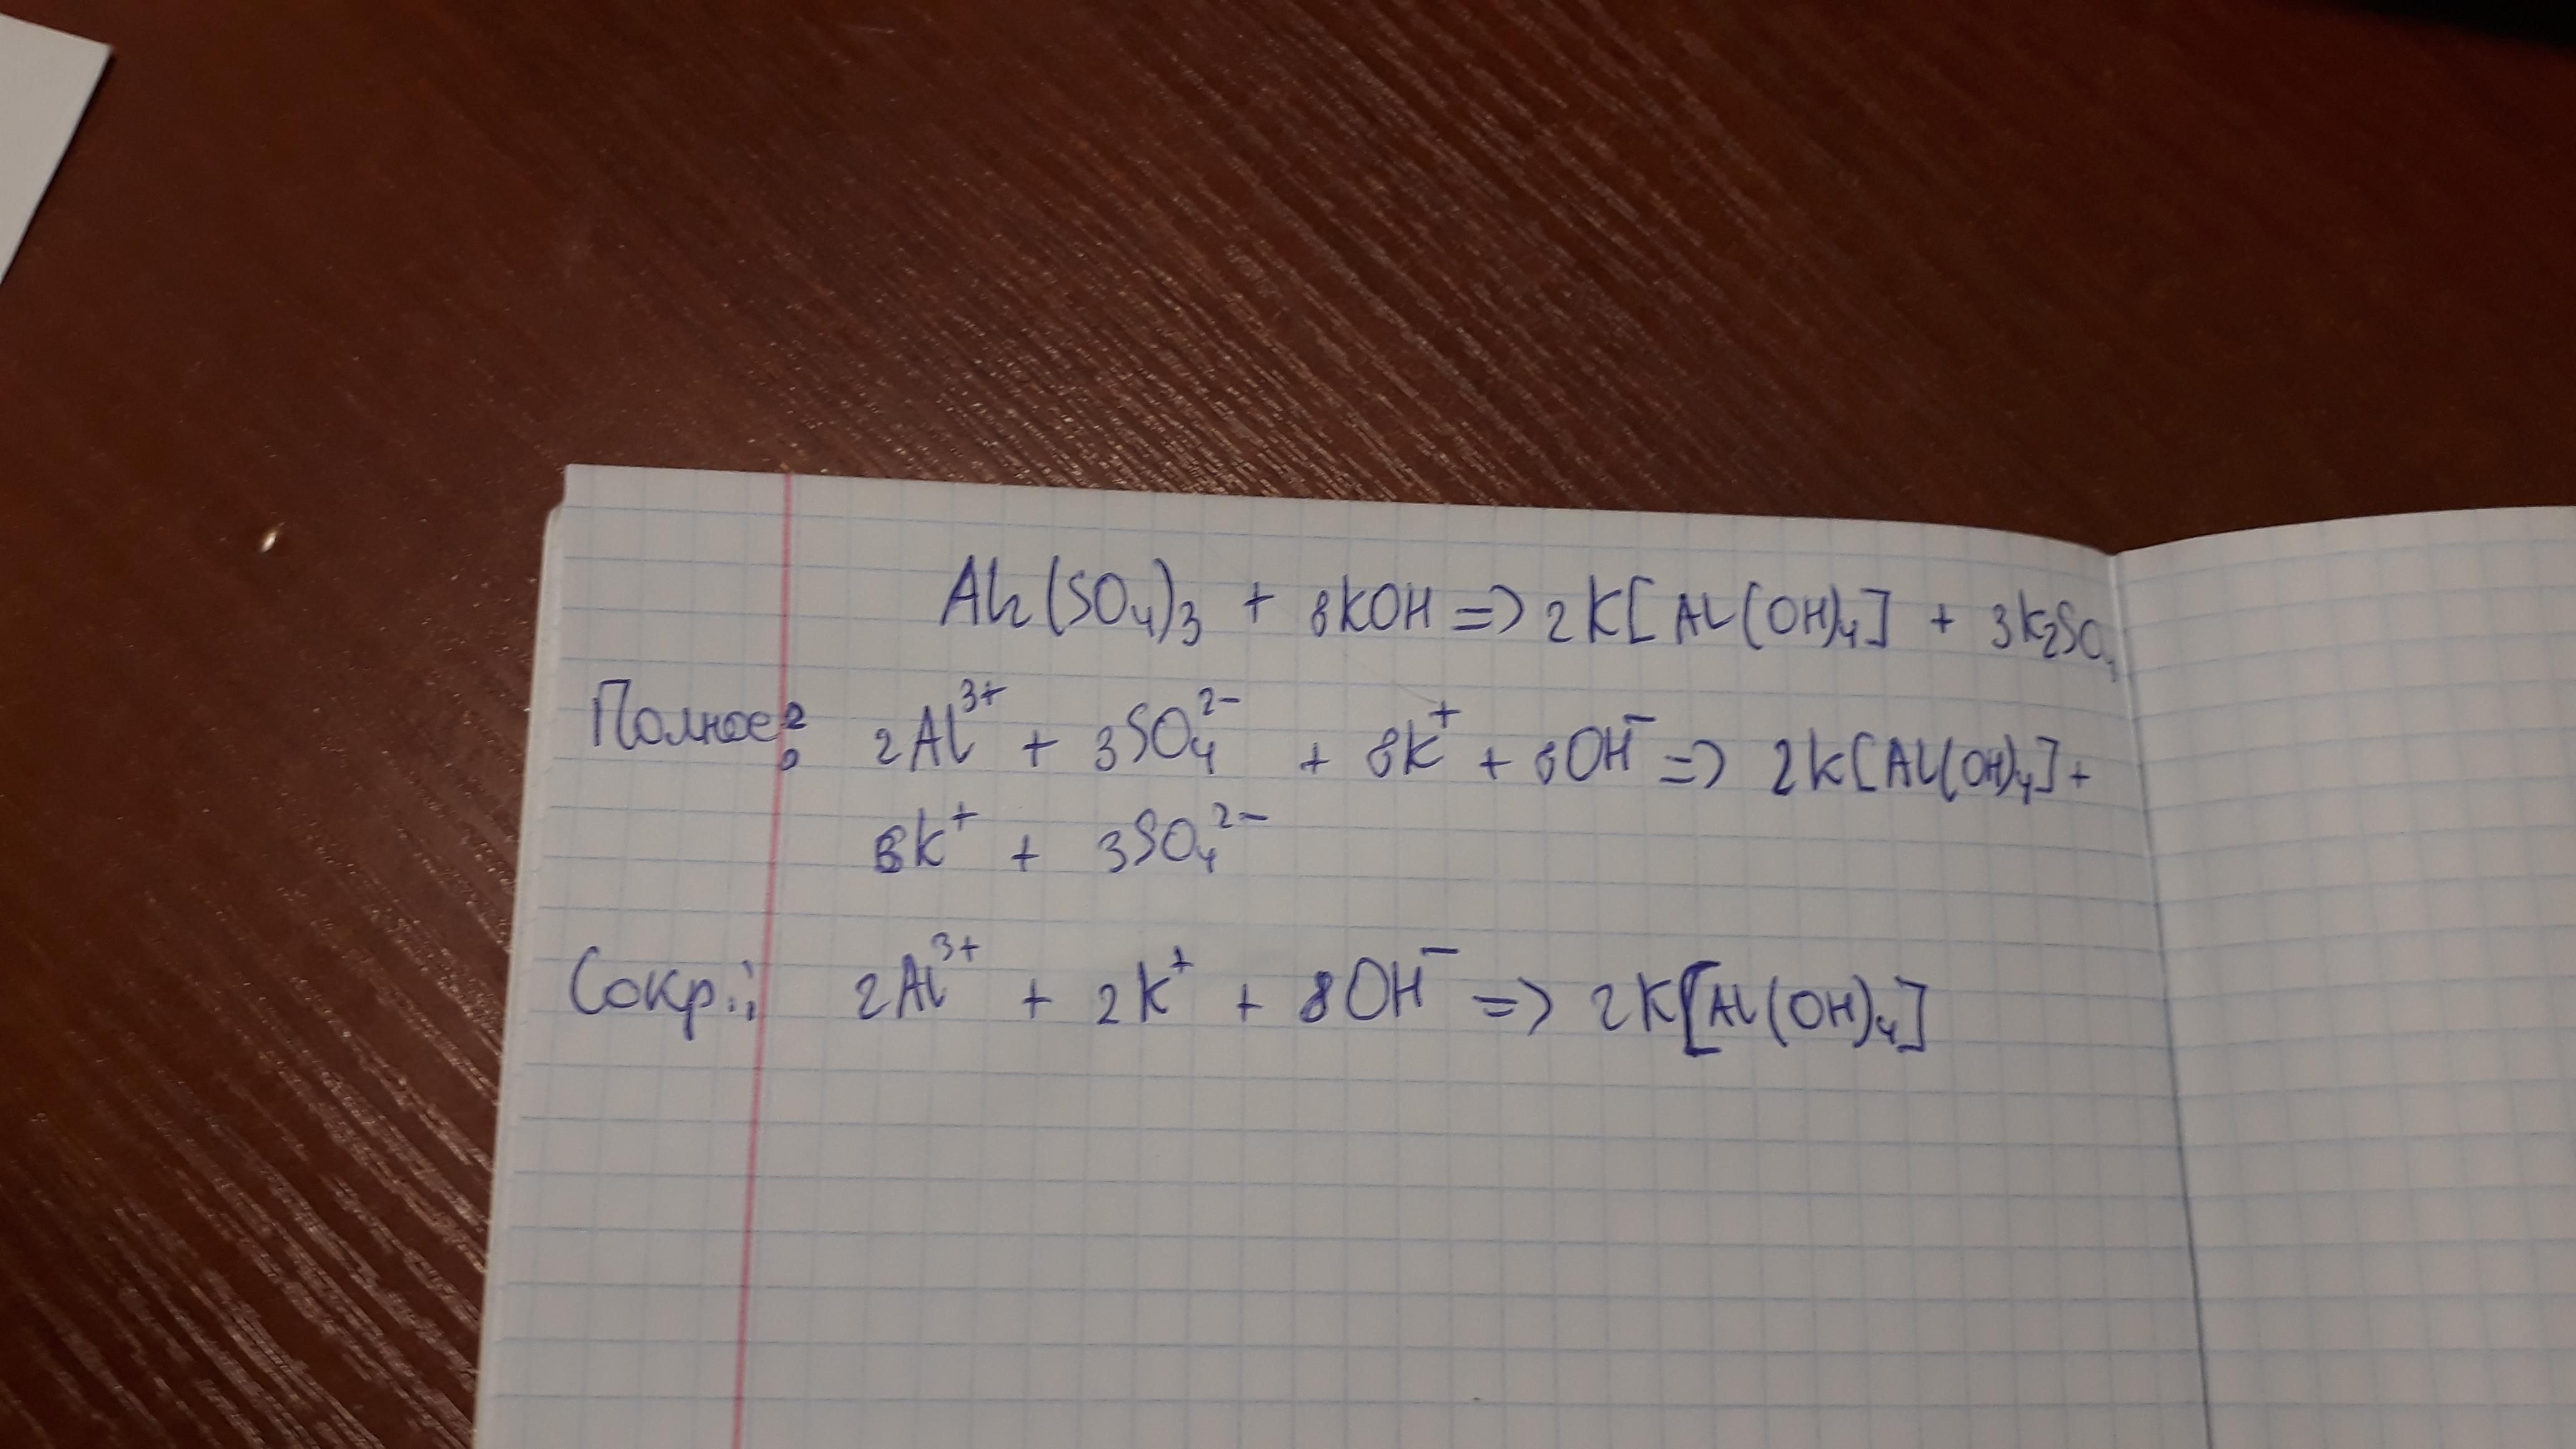 Al₂(SO₄)₃ + 8KOH => 2K[Al(OH)₄] + 3K₂SO₄
Полное: 2Al³⁺ + 3SO₄²⁻ + 8K⁺ + 8OH⁻ => 2K[Al(OH)₄] +
6K⁺ + 3SO₄²⁻
Сокр.: 2Al³⁺ + 2K⁺ + 8OH⁻ => 2K[Al(OH)₄]